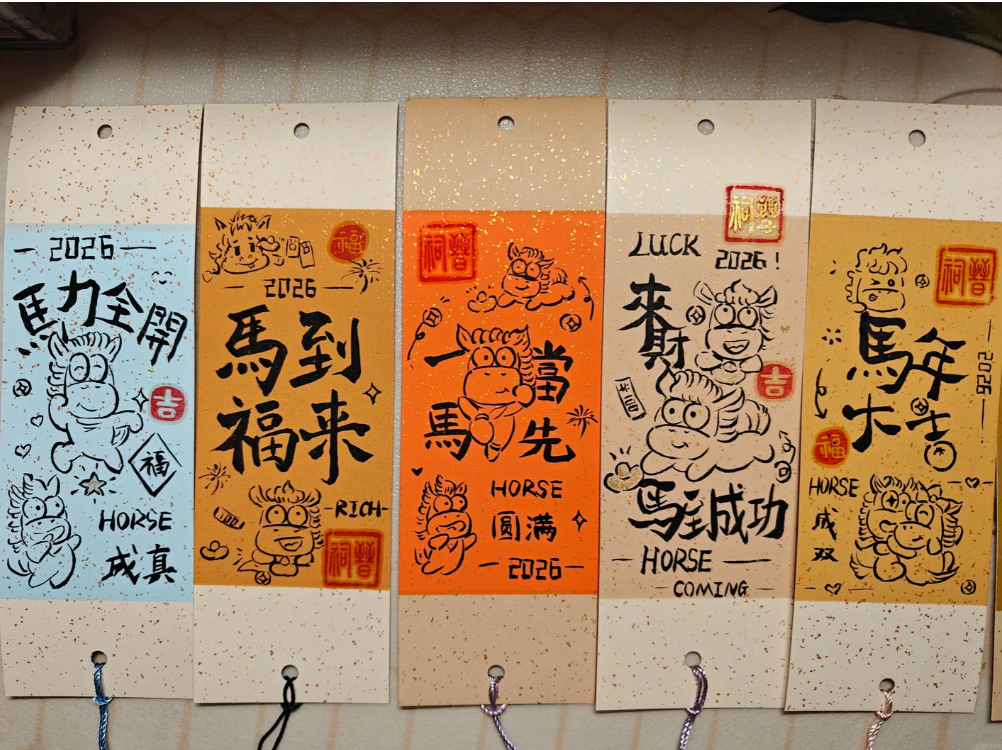 — 2026 —
馬力全開
吉
福
HORSE
成真
福
— 2026 —
馬到
福来
-RICH-
晉祠
晉祠
一馬當先
HORSE
圆满
— 2026 —
晉祠
LUCK 2026!
來財
吉
馬到成功
— HORSE —
— COMING —
晉祠
馬年
大吉
— 2026 —
福
HORSE
成双